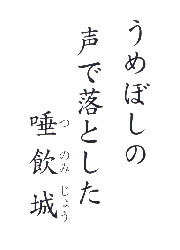 うめぼしの
声で落とした
唾飲城
つのみじょう